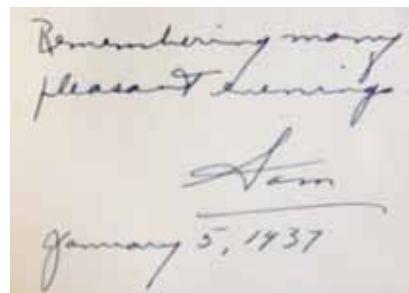 Remembering many
pleasant evenings
Sam
January 5, 1937